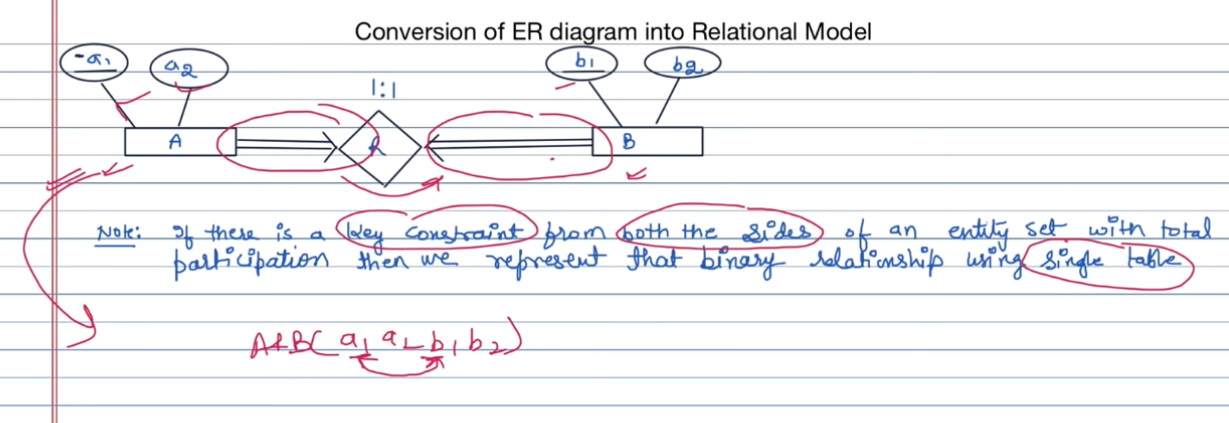 Conversion of ER diagram into Relational Model
a1 a2 b1 b2
1:1
A R B
Note: If there is a key constraint from both the sides of an entity set with total
participation then we represent that binary relationship using single table
ARB( a1 a2 b1 b2)